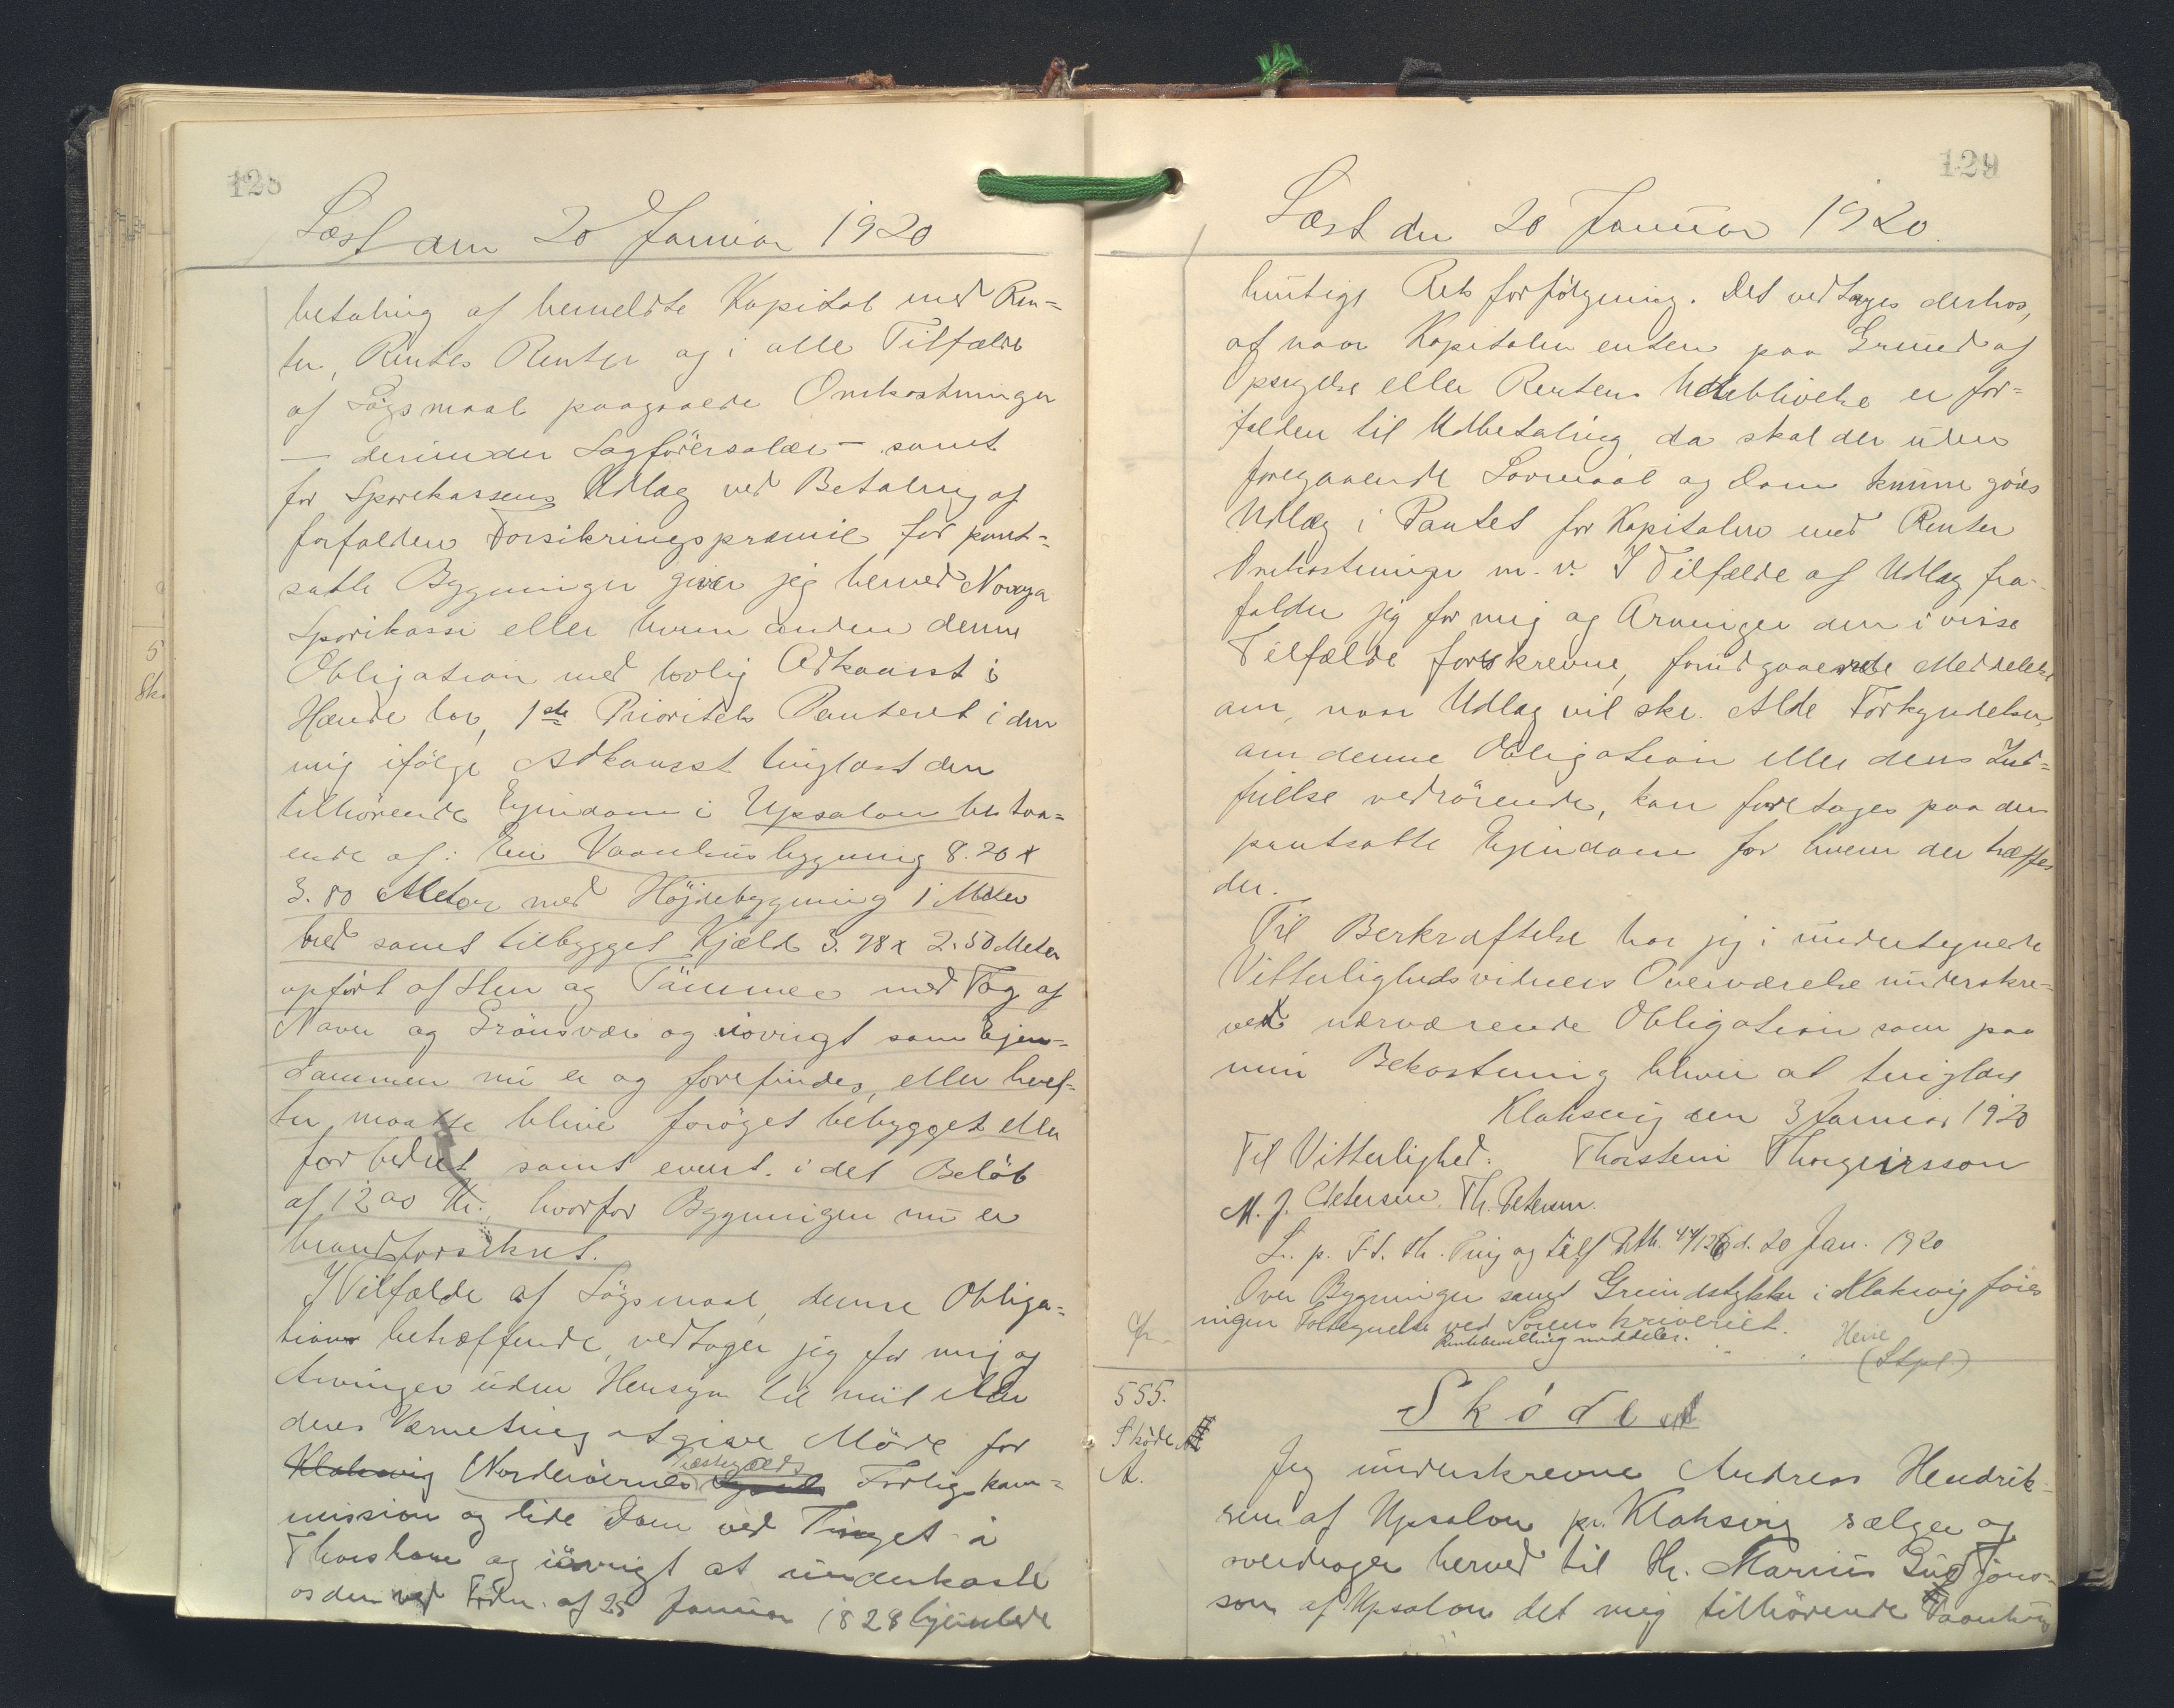 128
Læst den 20 Januar 1920
betaling af bemeldte Kapital med Ren=
ter, Rentes Renter og i alle Tilfælde
af Søgsmaal paagaaede Omkostninger
— derunder Sagförersalær — samt
for Sparekassens Udlæg ved Betaling af
forfalden Forsikringspræmie for pant=
satte Bygninger giver jeg herved Norøya
Sparikassi eller hvem anden denne
Obligation med lovlig Adkomst i
Hænde har, 1ste Prioritets Panteret i den
mig ifölge Adkomst tinglæst den
tilhörende Ejendom i Upsalon bestaa=
ende af: En Vaanhusbygning 8.20 x
3.80 Meter med Höjdebygning 1 Meter
bred samt tilbygget Kjæld 3.78 x 2.50 Meter
opført af Sten og Tömmer med Tag af
Næver og Grönsvær og iövrigt som Ejen=
dommen nu er og forefindes, eller heref=
ter maatte blive foröget bebygget eller
forbedret samt event. i det Belöb
af 1200 Kr., hvorfor Bygningen nu er
brandforsikret.
I Tilfælde af Sögsmaal, denne Obliga=
tion betræffende, vedtager jeg for mig og
Arvinger uden Hensyn til mit eller
deres Værneting at give Möde for
Klaksvig Norderöernes Præstegjælds Forligskom=
mission og lide Dom ved Tinget i
Thorshavn og iövrigt at underkaste
os den ved Frdn. af 25 Januar 1828 hjemlede
129
Læst den 20 Januar 1920.
hurtige Retsforfölgning. Det vedtages derhos,
at naar Kapitalen enten paa Grund af
Opsigelse eller Rentens Udeblivelse er for=
falden til Udbetaling, da skal der uden
foregaaende Lovmaal og Dom kunne göres
Udlæg i Pantet for Kapitalen med Renter
Omkostninger m. v. I Tilfælde af Udlæg fra=
falder jeg for mig og Arvinger den i visse
Tilfælde forskrevne, forudgaaende Meddelelse
om, naar Udlæg vil ske. Alle Forkyndelser,
om denne Obligation eller dens Ind=
frielse vedrörende, kan foretages paa den
pantsatte Ejendom for hvem der træffes
der.
Til Bekræftelse har jeg i undertegnede
Vitterlighedsvidners Overværelse underskre=
vet nærværende Obligation som paa
min Bekostning bliver at tinglæse
Klaksvig den 3 Januar 1920
Til Vitterlighed: Thorstein Thorgeirsson
M. J. Petersen, Th. Petersen.
L. p. F. S. Th. Ting og til Pth. 44/126 d. 20 Jan. 1920
Over Bygninger samt Grundstykker i Klaksvig föres
ingen Fortegnelse ved Sorenskriveriet.
Rentebevilling meddeles. Heise
Cfr. (Stpl.)
555.
Sköde
A.
Sköde
Jeg underskrevne Andreas Hendrik=
sen af Upsalon pr. Klaksvig sælger og
overdrager herved til Hr. Marius Gudjóns=
son af Upsalon det mig tilhörende Vaanhus
5
Skø